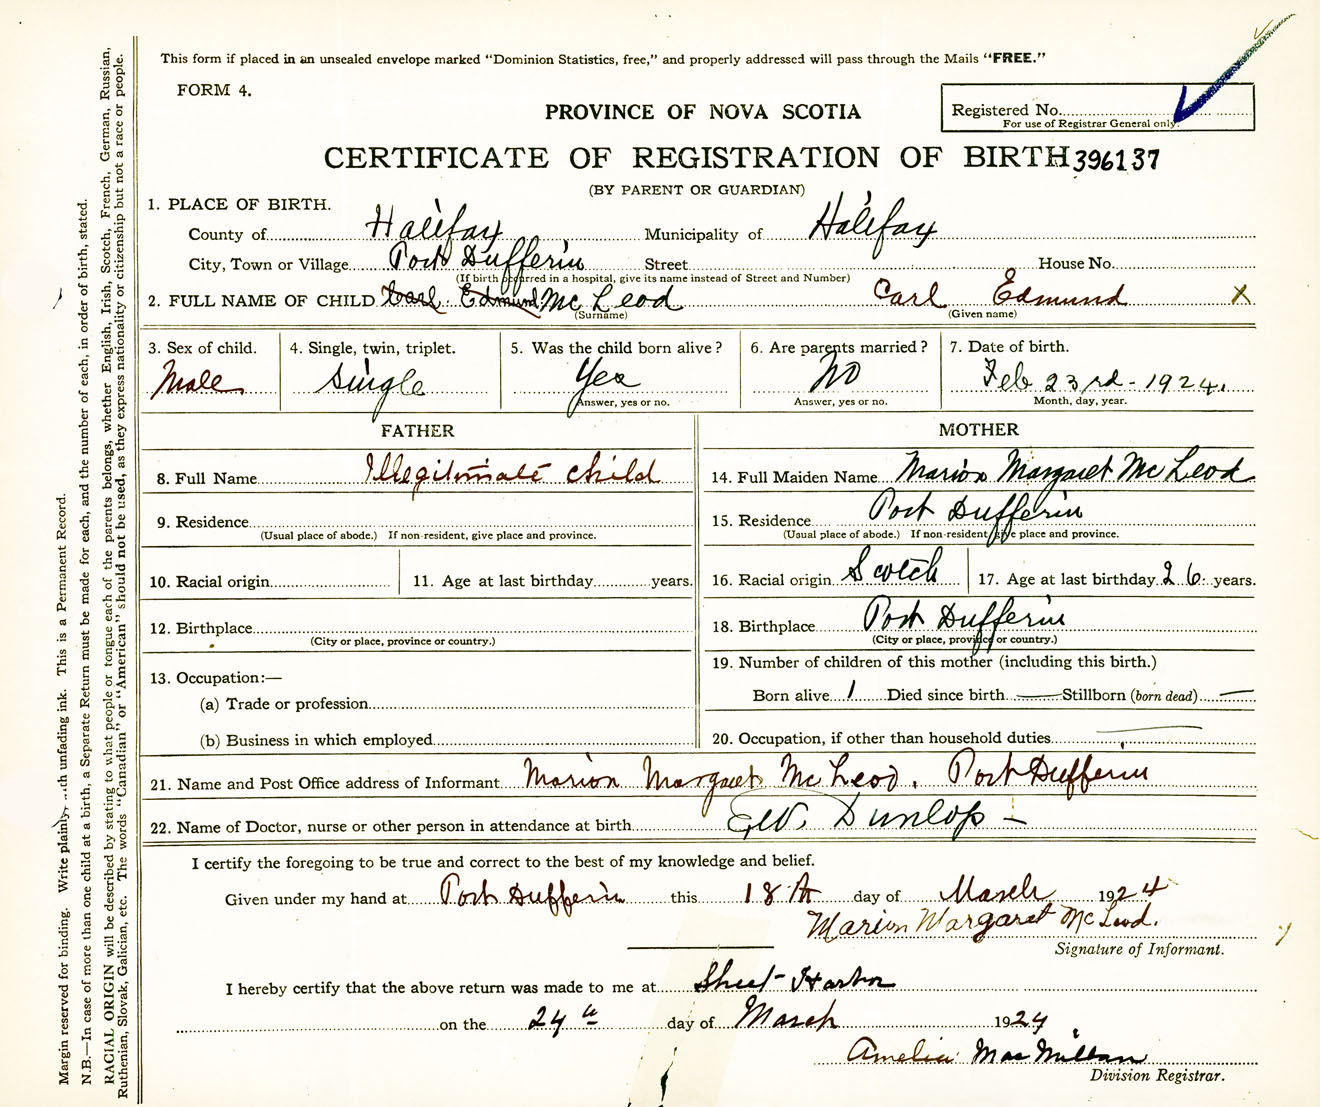 This form if placed in an unsealed envelope marked "Dominion Statistics, free," and properly addressed will pass through the Mails "FREE."
FORM 4.
PROVINCE OF NOVA SCOTIA
Registered No.
For use of Registrar General only.
CERTIFICATE OF REGISTRATION OF BIRTH 396137
(BY PARENT OR GUARDIAN)
1. PLACE OF BIRTH.
County of Halifax Municipality of Halifax
City, Town or Village Port Dufferin Street House No.
(If birth occurred in a hospital, give its name instead of Street and Number)
2. FULL NAME OF CHILD Carl Edmund McLeod Carl Edmund X
(Surname) (Given name)
3. Sex of child. 4. Single, twin, triplet. 5. Was the child born alive? 6. Are parents married? 7. Date of birth.
Male Single Yes No Feb 23rd - 1924.
Answer, yes or no. Answer, yes or no. Month, day, year.
FATHER
8. Full Name Illegitimate child
9. Residence
(Usual place of abode.) If non-resident, give place and province.
10. Racial origin 11. Age at last birthday years.
12. Birthplace
(City or place, province or country.)
13. Occupation:—
(a) Trade or profession
(b) Business in which employed
MOTHER
14. Full Maiden Name Marion Margaret McLeod
15. Residence Port Dufferin
(Usual place of abode.) If non-resident, give place and province.
16. Racial origin Scotch 17. Age at last birthday 26 years.
18. Birthplace Port Dufferin
(City or place, province or country.)
19. Number of children of this mother (including this birth.)
Born alive 1 Died since birth — Stillborn (born dead) —
20. Occupation, if other than household duties —
21. Name and Post Office address of Informant Marion Margaret McLeod. Port Dufferin
22. Name of Doctor, nurse or other person in attendance at birth Dunlop -
I certify the foregoing to be true and correct to the best of my knowledge and belief.
Given under my hand at Port Dufferin this 18th day of March 1924
Marion Margaret McLeod.
Signature of Informant.
I hereby certify that the above return was made to me at Sheet Harbor
on the 24th day of March 1924
Amelia MacMillan
Division Registrar.
Margin reserved for binding. Write plainly unfading ink. This is a Permanent Record.
N.B.—In case of more than one child at a birth, a Separate Return must be made for each, and the number of each, in order of birth, stated.
RACIAL ORIGIN will be described by stating to what people or tongue each of the parents belongs, whether English, Irish, Scotch, French, German, Russian,
Ruthenian, Slovak, Galician, etc. The words "Canadian" or "American" should not be used, as they express nationality or citizenship but not a race or people.